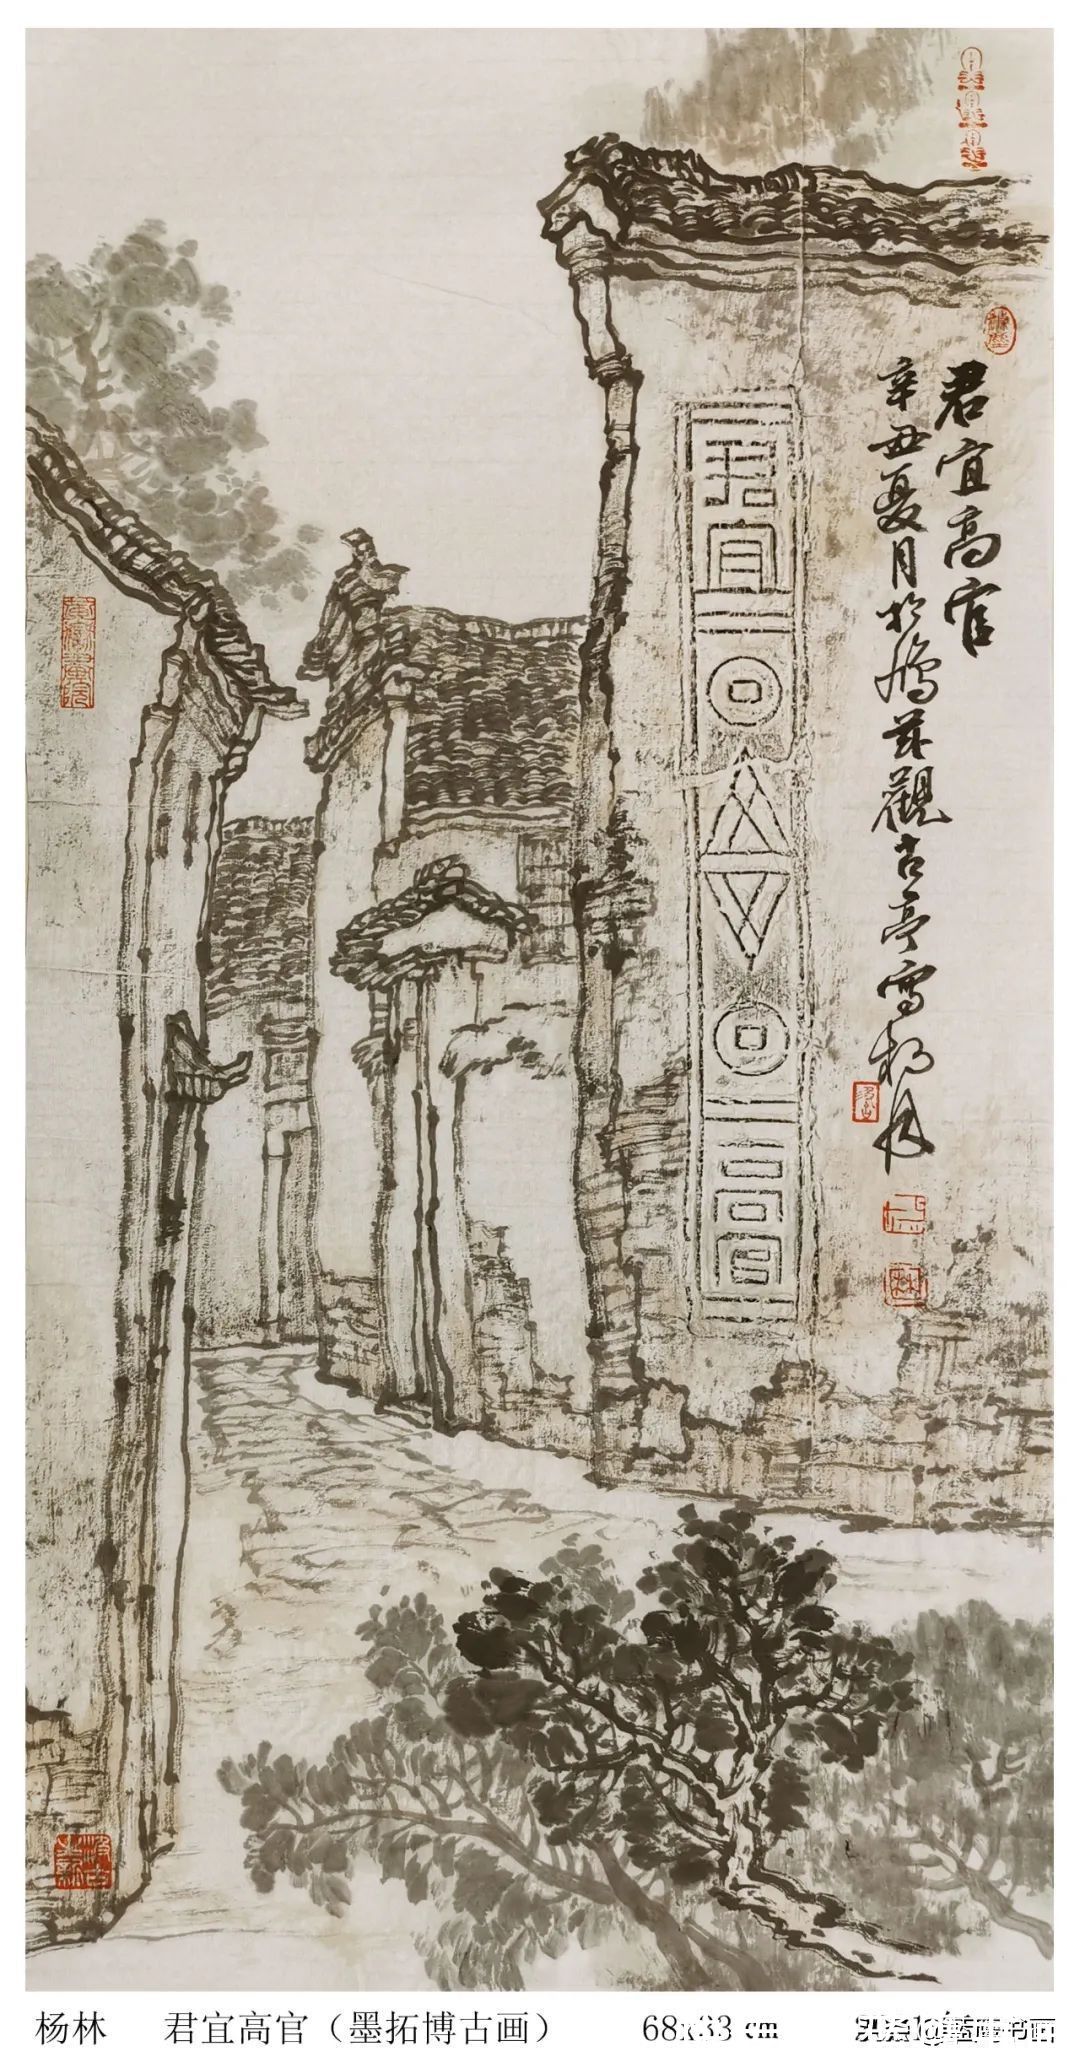 君宜高官
辛丑夏月於鳩茲觀古亭寫杨林
君宜
高官
杨林 君宜高官（墨拓博古画） 68x33 cm